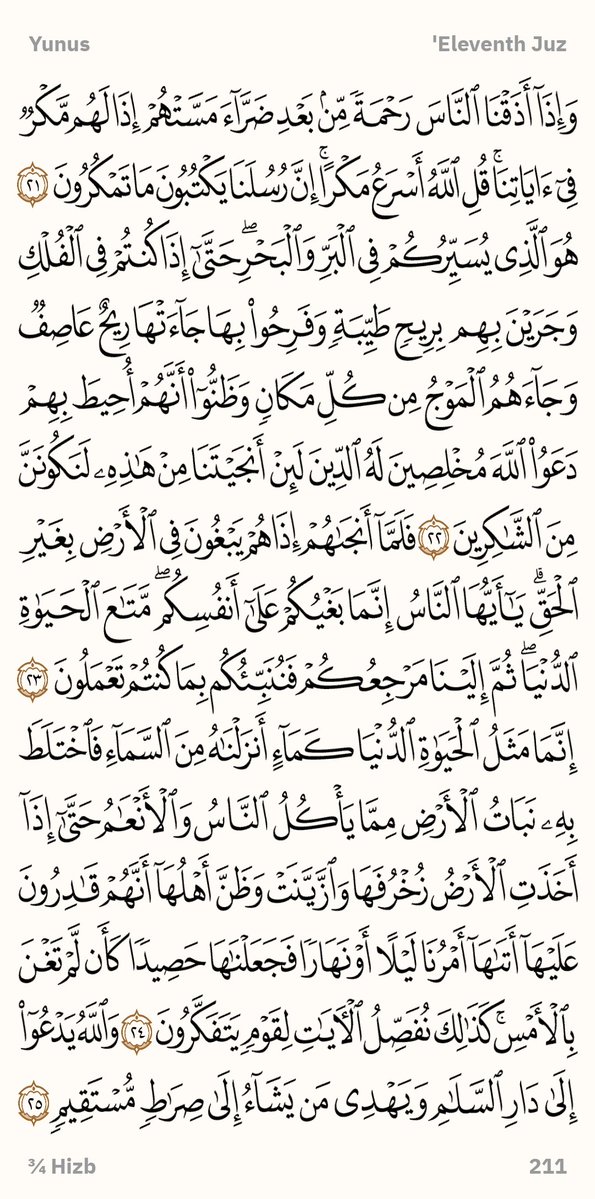 Yunus 'Eleventh Juz
وَإِذَآ أَذَقْنَا ٱلنَّاسَ رَحْمَةً مِّنۢ بَعْدِ ضَرَّآءَ مَسَّتْهُمْ إِذَا لَهُم مَّكْرٌ
فِىٓ ءَايَاتِنَا ۚ قُلِ ٱللَّهُ أَسْرَعُ مَكْرًا ۚ إِنَّ رُسُلَنَا يَكْتُبُونَ مَا تَمْكُرُونَ ٢١
هُوَ ٱلَّذِى يُسَيِّرُكُمْ فِى ٱلْبَرِّ وَٱلْبَحْرِ ۖ حَتَّىٰٓ إِذَا كُنتُمْ فِى ٱلْفُلْكِ
وَجَرَيْنَ بِهِم بِرِيحٍ طَيِّبَةٍ وَفَرِحُوا۟ بِهَا جَآءَتْهَا رِيحٌ عَاصِفٌ
وَجَآءَهُمُ ٱلْمَوْجُ مِن كُلِّ مَكَانٍ وَظَنُّوٓا۟ أَنَّهُمْ أُحِيطَ بِهِمْ
دَعَوُا۟ ٱللَّهَ مُخْلِصِينَ لَهُ ٱلدِّينَ لَئِنْ أَنجَيْتَنَا مِنْ هَٰذِهِۦ لَنَكُونَنَّ
مِنَ ٱلشَّٰكِرِينَ ٢٢ فَلَمَّآ أَنجَىٰهُمْ إِذَا هُمْ يَبْغُونَ فِى ٱلْأَرْضِ بِغَيْرِ
ٱلْحَقِّ ۗ يَٰٓأَيُّهَا ٱلنَّاسُ إِنَّمَا بَغْيُكُمْ عَلَىٰٓ أَنفُسِكُم ۖ مَّتَٰعَ ٱلْحَيَوٰةِ
ٱلدُّنْيَا ۖ ثُمَّ إِلَيْنَا مَرْجِعُكُمْ فَنُنَبِّئُكُم بِمَا كُنتُمْ تَعْمَلُونَ ٢٣
إِنَّمَا مَثَلُ ٱلْحَيَوٰةِ ٱلدُّنْيَا كَمَآءٍ أَنزَلْنَٰهُ مِنَ ٱلسَّمَآءِ فَٱخْتَلَطَ
بِهِۦ نَبَاتُ ٱلْأَرْضِ مِمَّا يَأْكُلُ ٱلنَّاسُ وَٱلْأَنْعَٰمُ حَتَّىٰٓ إِذَآ
أَخَذَتِ ٱلْأَرْضُ زُخْرُفَهَا وَٱزَّيَّنَتْ وَظَنَّ أَهْلُهَآ أَنَّهُمْ قَٰدِرُونَ
عَلَيْهَآ أَتَىٰهَآ أَمْرُنَا لَيْلًا أَوْ نَهَارًا فَجَعَلْنَٰهَا حَصِيدًا كَأَن لَّمْ تَغْنَ
بِٱلْأَمْسِ ۚ كَذَٰلِكَ نُفَصِّلُ ٱلْـَٔايَٰتِ لِقَوْمٍ يَتَفَكَّرُونَ ٢٤ وَٱللَّهُ يَدْعُوٓا۟
إِلَىٰ دَارِ ٱلسَّلَٰمِ وَيَهْدِى مَن يَشَآءُ إِلَىٰ صِرَٰطٍ مُّسْتَقِيمٍ ٢٥
¾ Hizb 211